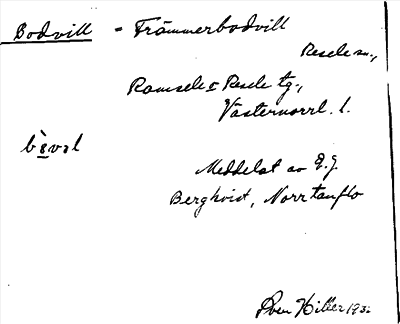 Bodvill = Främmerbodvill
Resele sn.,
Ramsele o Resele tg.,
Västernorrl. l.
bò̱vəl
Meddelat av E. J.
Bergkvist, Norrtanflo
Sven Hiller 1932